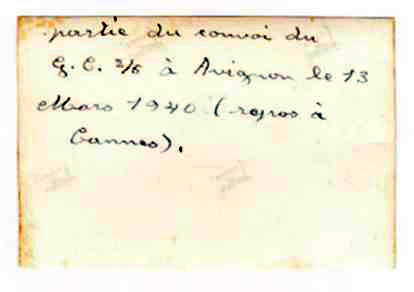 partie du convoi du
G.C. 2/5 à Avignon le 13
Mars 1940 (repos à
Cannes).